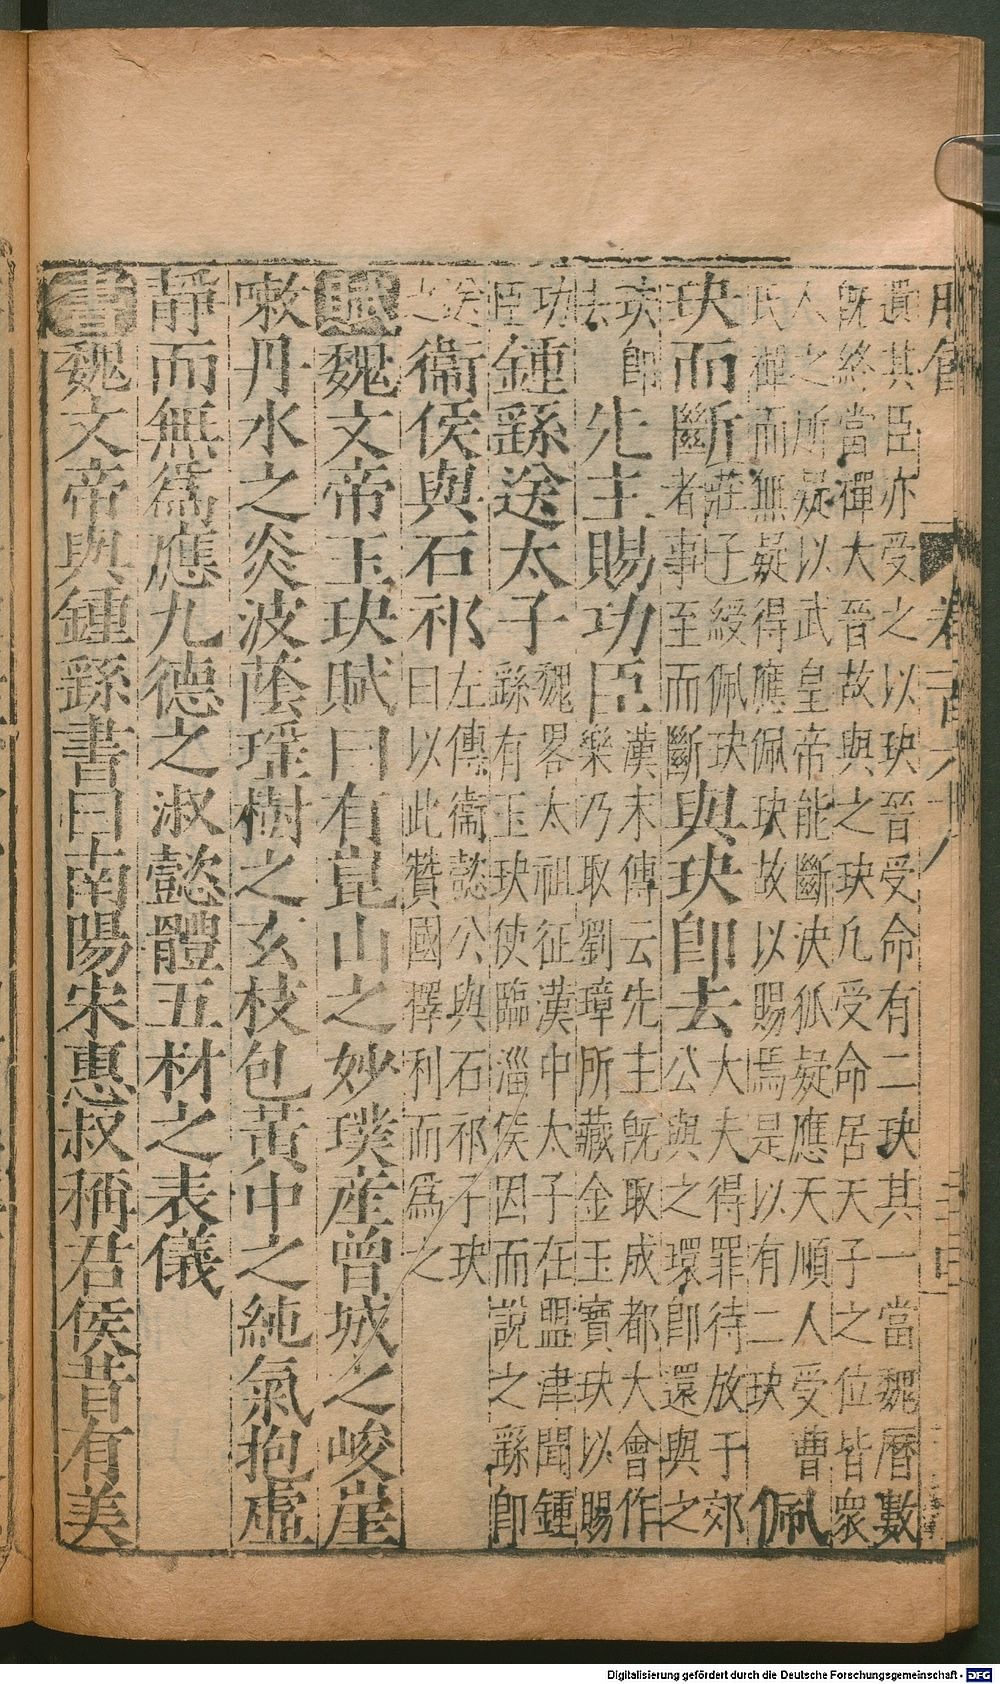 遺其臣亦受之以玦晉受命有二玦其一當魏曆數
既終當禪大晉故與之玦凢受命居天子之位皆衆
人之所疑以武皇帝能斷決狐疑應天順人受曹
氏禪而無疑得應佩玦故以賜焉是以有二玦 佩
玦而斷 莊子綬佩玦
者事至而斷 與玦卽去 大夫得罪待放于郊
公與之環卽還與之
玦卽
去 先主賜功臣 漢末傳云先主既取成都大會作
樂乃取劉璋所藏金玉寶玦以賜
功
臣 鍾繇送太子 魏畧太祖征漢中太子在盟津聞鍾
繇有玉玦使臨淄侯因而說之繇卽
送
之 衞侯與石祁 左傳衞懿公與石祁子玦
曰以此贊國擇利而爲之
賦 魏文帝玉玦賦曰有崑山之妙璞產曾城之峻崖
嗽丹水之炎波蔭瑶樹之玄枝包黃中之純氣抱虛
靜而無爲應九德之淑懿體五材之表儀
書 魏文帝與鍾繇書曰南陽宋惠叔稱君侯昔有美
Digitalisierung gefördert durch die Deutsche Forschungsgemeinschaft - DFG